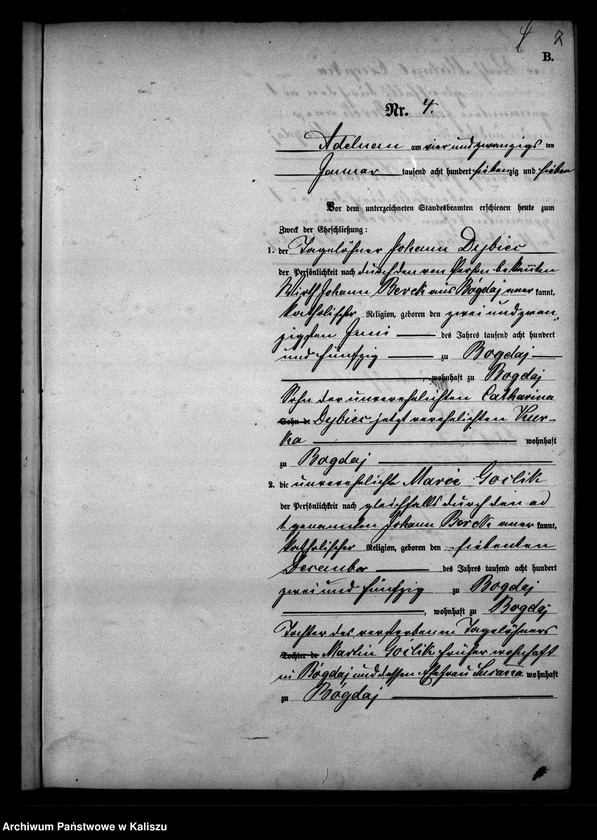 4 2
B.
Nr. 4.
Adelnau am vier und zwanzigs ten
Januar tausend acht hundert siebenzig und sieben
Vor dem unterzeichneten Standesbeamten erschienen heute zum
Zweck der Eheschließung:
1. der Tagelöhner Johann Dybiec
der Persönlichkeit nach durch den von Person bekannten
Wirth Johann Berek aus Bógdaj aner kannt,
katholischer Religion, geboren den zwei und zwan-
zigsten Juni des Jahres tausend acht hundert
und fünfzig zu Bogdaj
, wohnhaft zu Bogdaj
Sohn der unverehelichten Catharina
Sohn de Dybiec jetzt verehelichten Kur-
ka wohnhaft
zu Bogdaj
2. die unverehelicht Marie Goslik
der Persönlichkeit nach gleichfalls durch den ad
1. genannten Johann Berek aner kannt,
katholischer Religion, geboren den siebenten
December des Jahres tausend acht hundert
zwei und fünfzig zu Bogdaj
, wohnhaft zu Bogdaj
Tochter des verstorbenen Tagelöhners
Tochter de Martin Goślik früher wohnhaft
in Bógdaj und dessen Ehefrau wohnhaft
zu Bógdaj
Archiwum Państwowe w Kaliszu